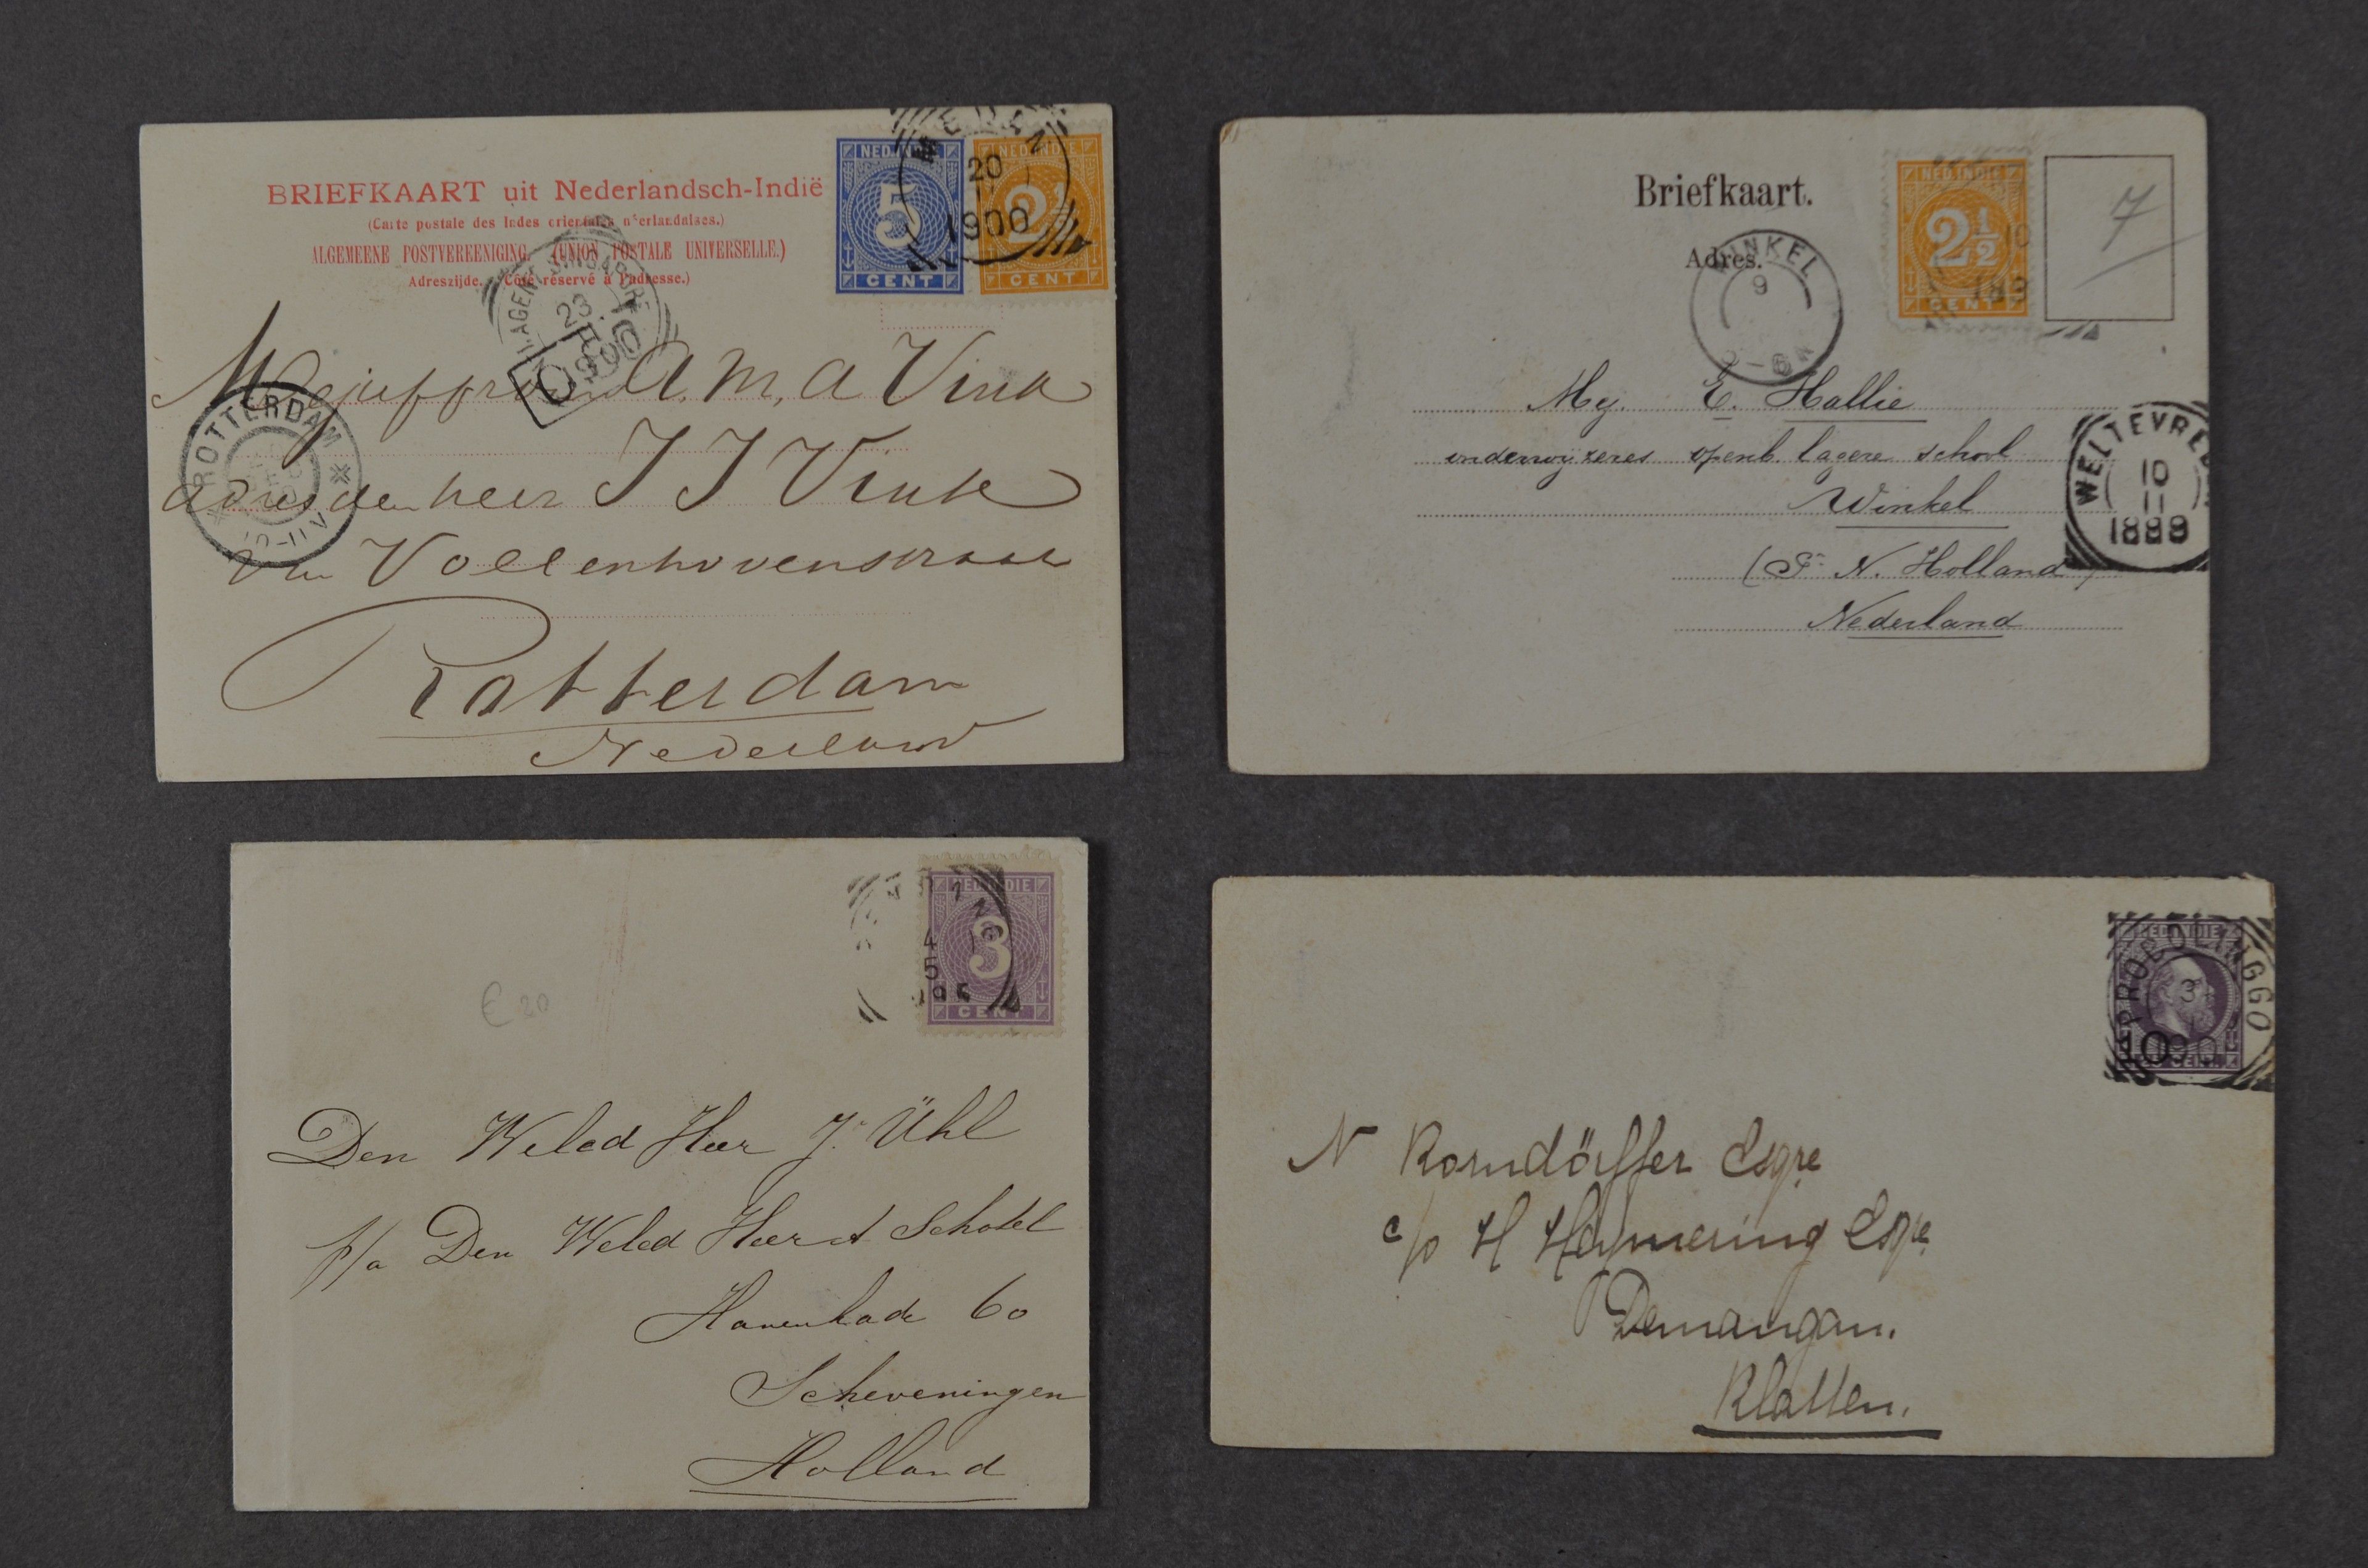 BRIEFKAART uit Nederlandsch-Indië
(Carte postale des Indes orientales néerlandaises.)
ALGEMEENE POSTVEREENIGING. (UNION POSTALE UNIVERSELLE.)
Adreszijde. (Côté réservé à l'adresse.)
NED. INDIE
5
CENT
NED. INDIE
2½
CENT
MEDAN
20
1900
23
1900
Mejuffrou A. M. A Vink
adres den heer J J Vink
van Vollenhovenstraat
Rotterdam
Nederland
ROTTERDAM
10-11V
Briefkaart.
Adres.
NED. INDIE
2½
CENT
7
WINKEL
9
Mej. E. Hallie
onderwyzeres openb. lagere school
Winkel
(P. N. Holland)
Nederland
WELTEVREDEN
10
11
1888
NED. INDIE
3
CENT
4
5
€ 20
Den Weled Heer J. Ühl
p/a Den Weled Heer A Schotel
Havenkade 60
Scheveningen
Holland
NED. INDIE
PROBOLINGGO
3
10
CENT
N Korndörffer Esqre
c/o H Haymering Esqre
Demangan.
Klatten.